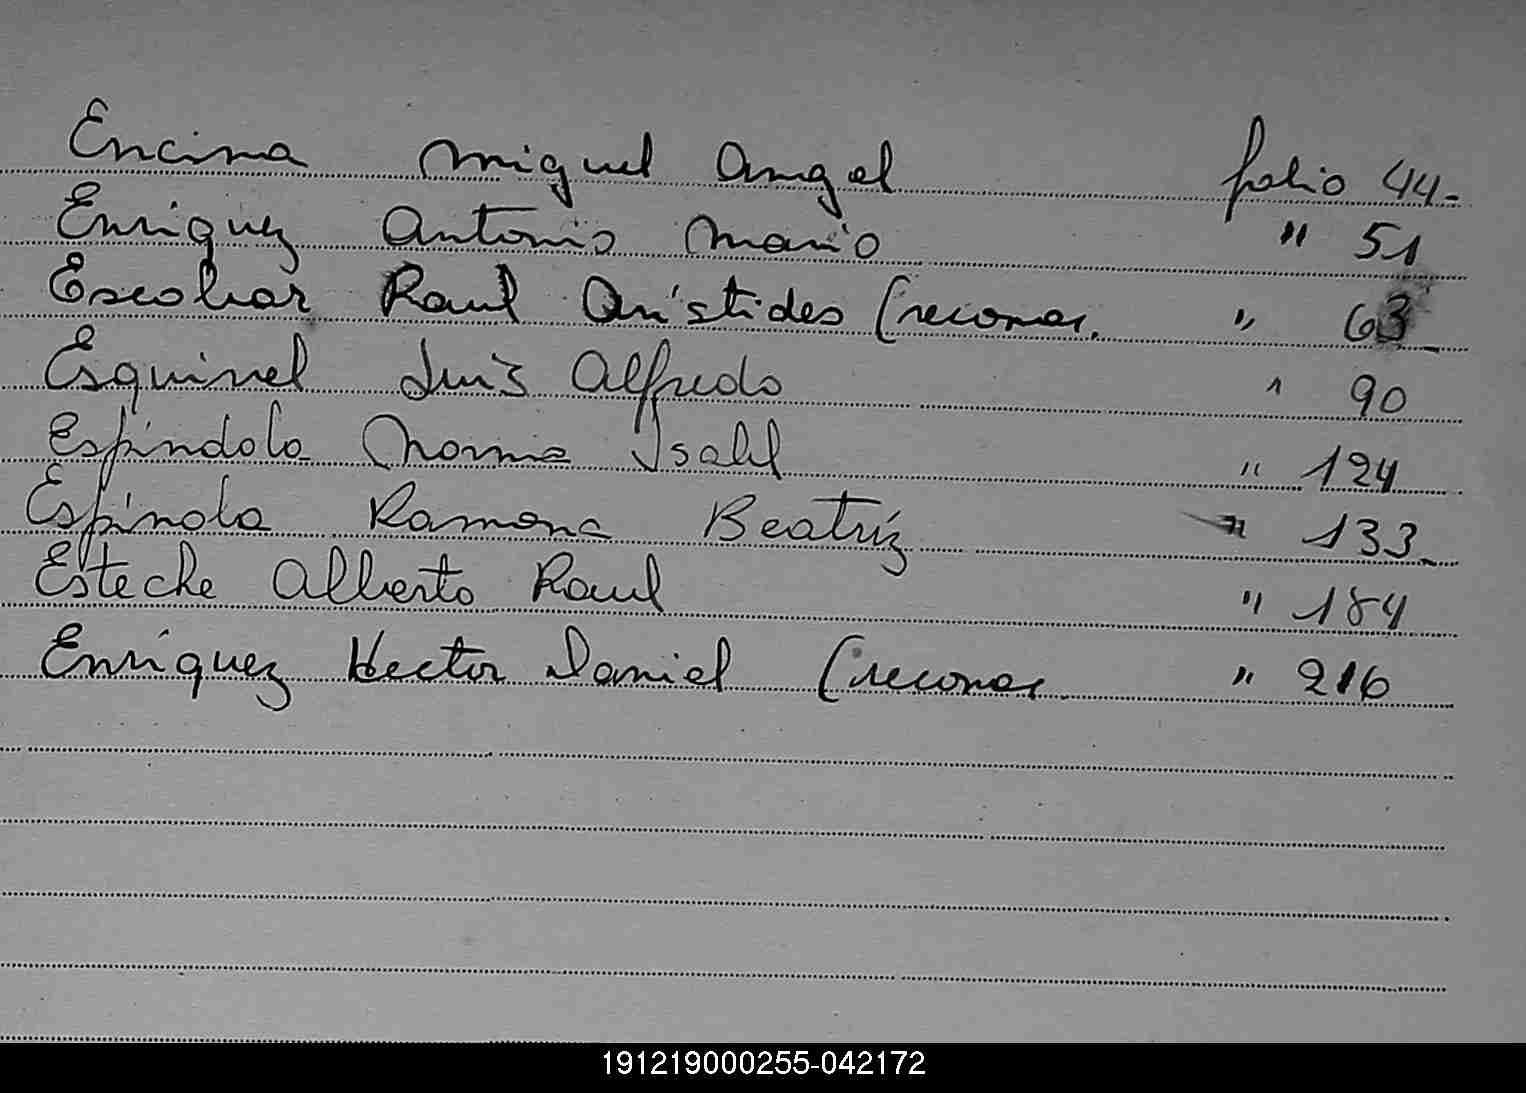 Encina Miguel Angel folio 44-
Enriquez Antonio Mario " 51
Escobar Raul Aristides (reconoc. " 63
Esquivel Luis Alfredo " 90
Espíndola Norma Isabel " 124
Espínola Ramona Beatríz " 133
Esteche Alberto Raul " 184
Enriquez Hector Daniel (reconoc. " 216
191219000255-042172